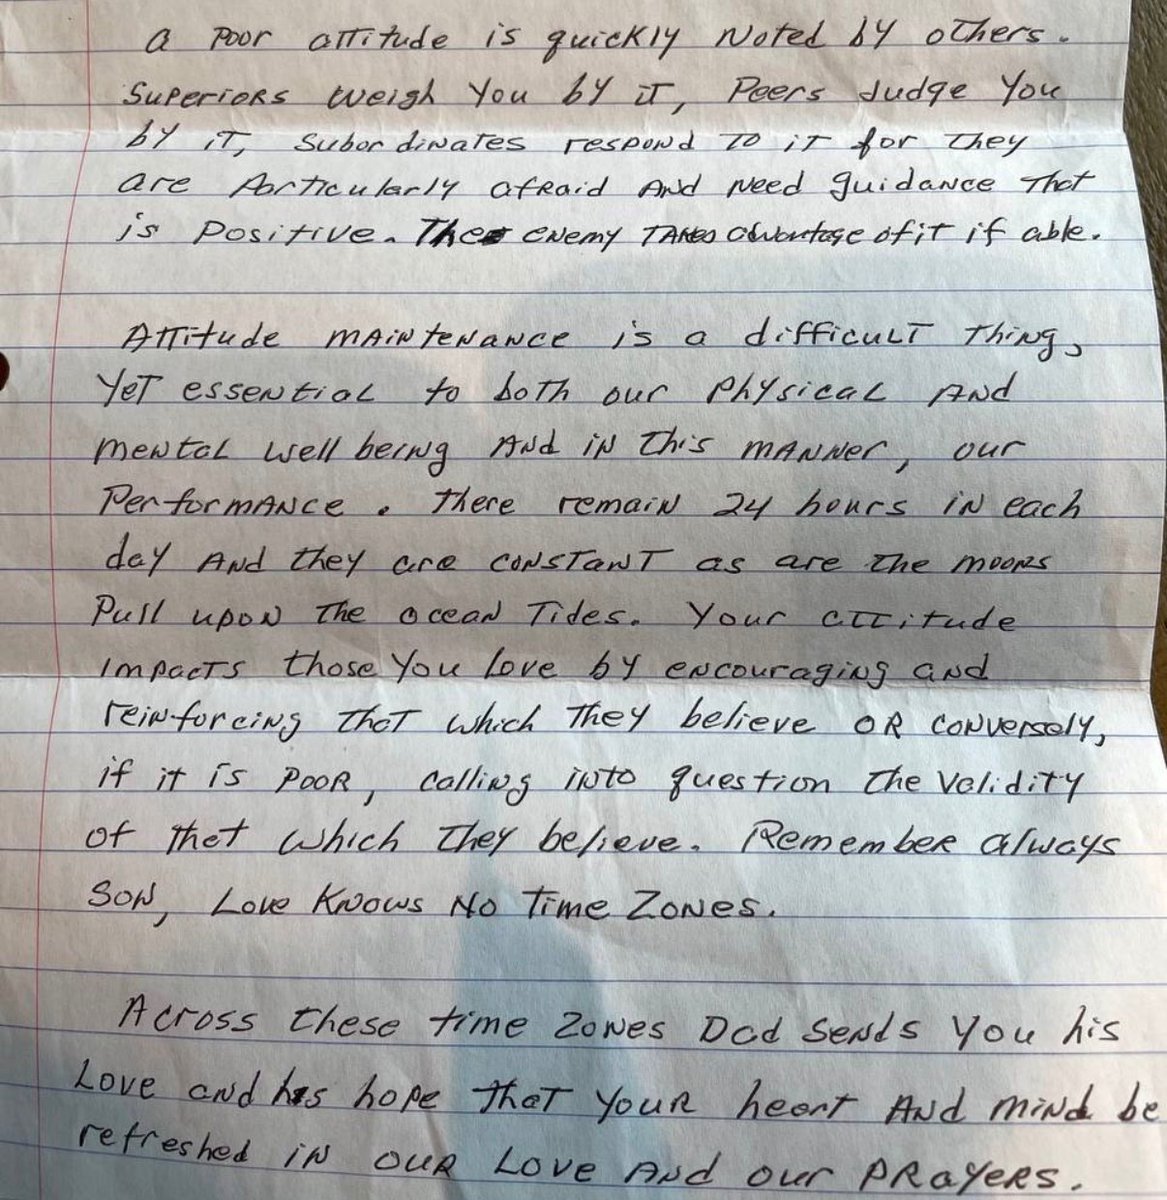 a Poor attitude is quickly Noted by others.
Superiors weigh you by it, Peers Judge you
by it, Subordinates respond to it for they
are Particularly afraid and need guidance that
is Positive. The enemy takes advantage of it if able.
Attitude maintenance is a difficult thing,
yet essential to both our physical and
mental well being and in this manner, our
Performance. There remain 24 hours in each
day and they are constant as are the moons
Pull upon the ocean Tides. Your attitude
impacts those you love by encouraging and
reinforcing that which they believe or conversely,
if it is poor, calling into question the validity
of that which they believe. Remember always
Son, Love Knows No Time Zones.
Across these time zones Dad sends you his
Love and his hope that your heart and mind be
refreshed in our Love and our prayers.